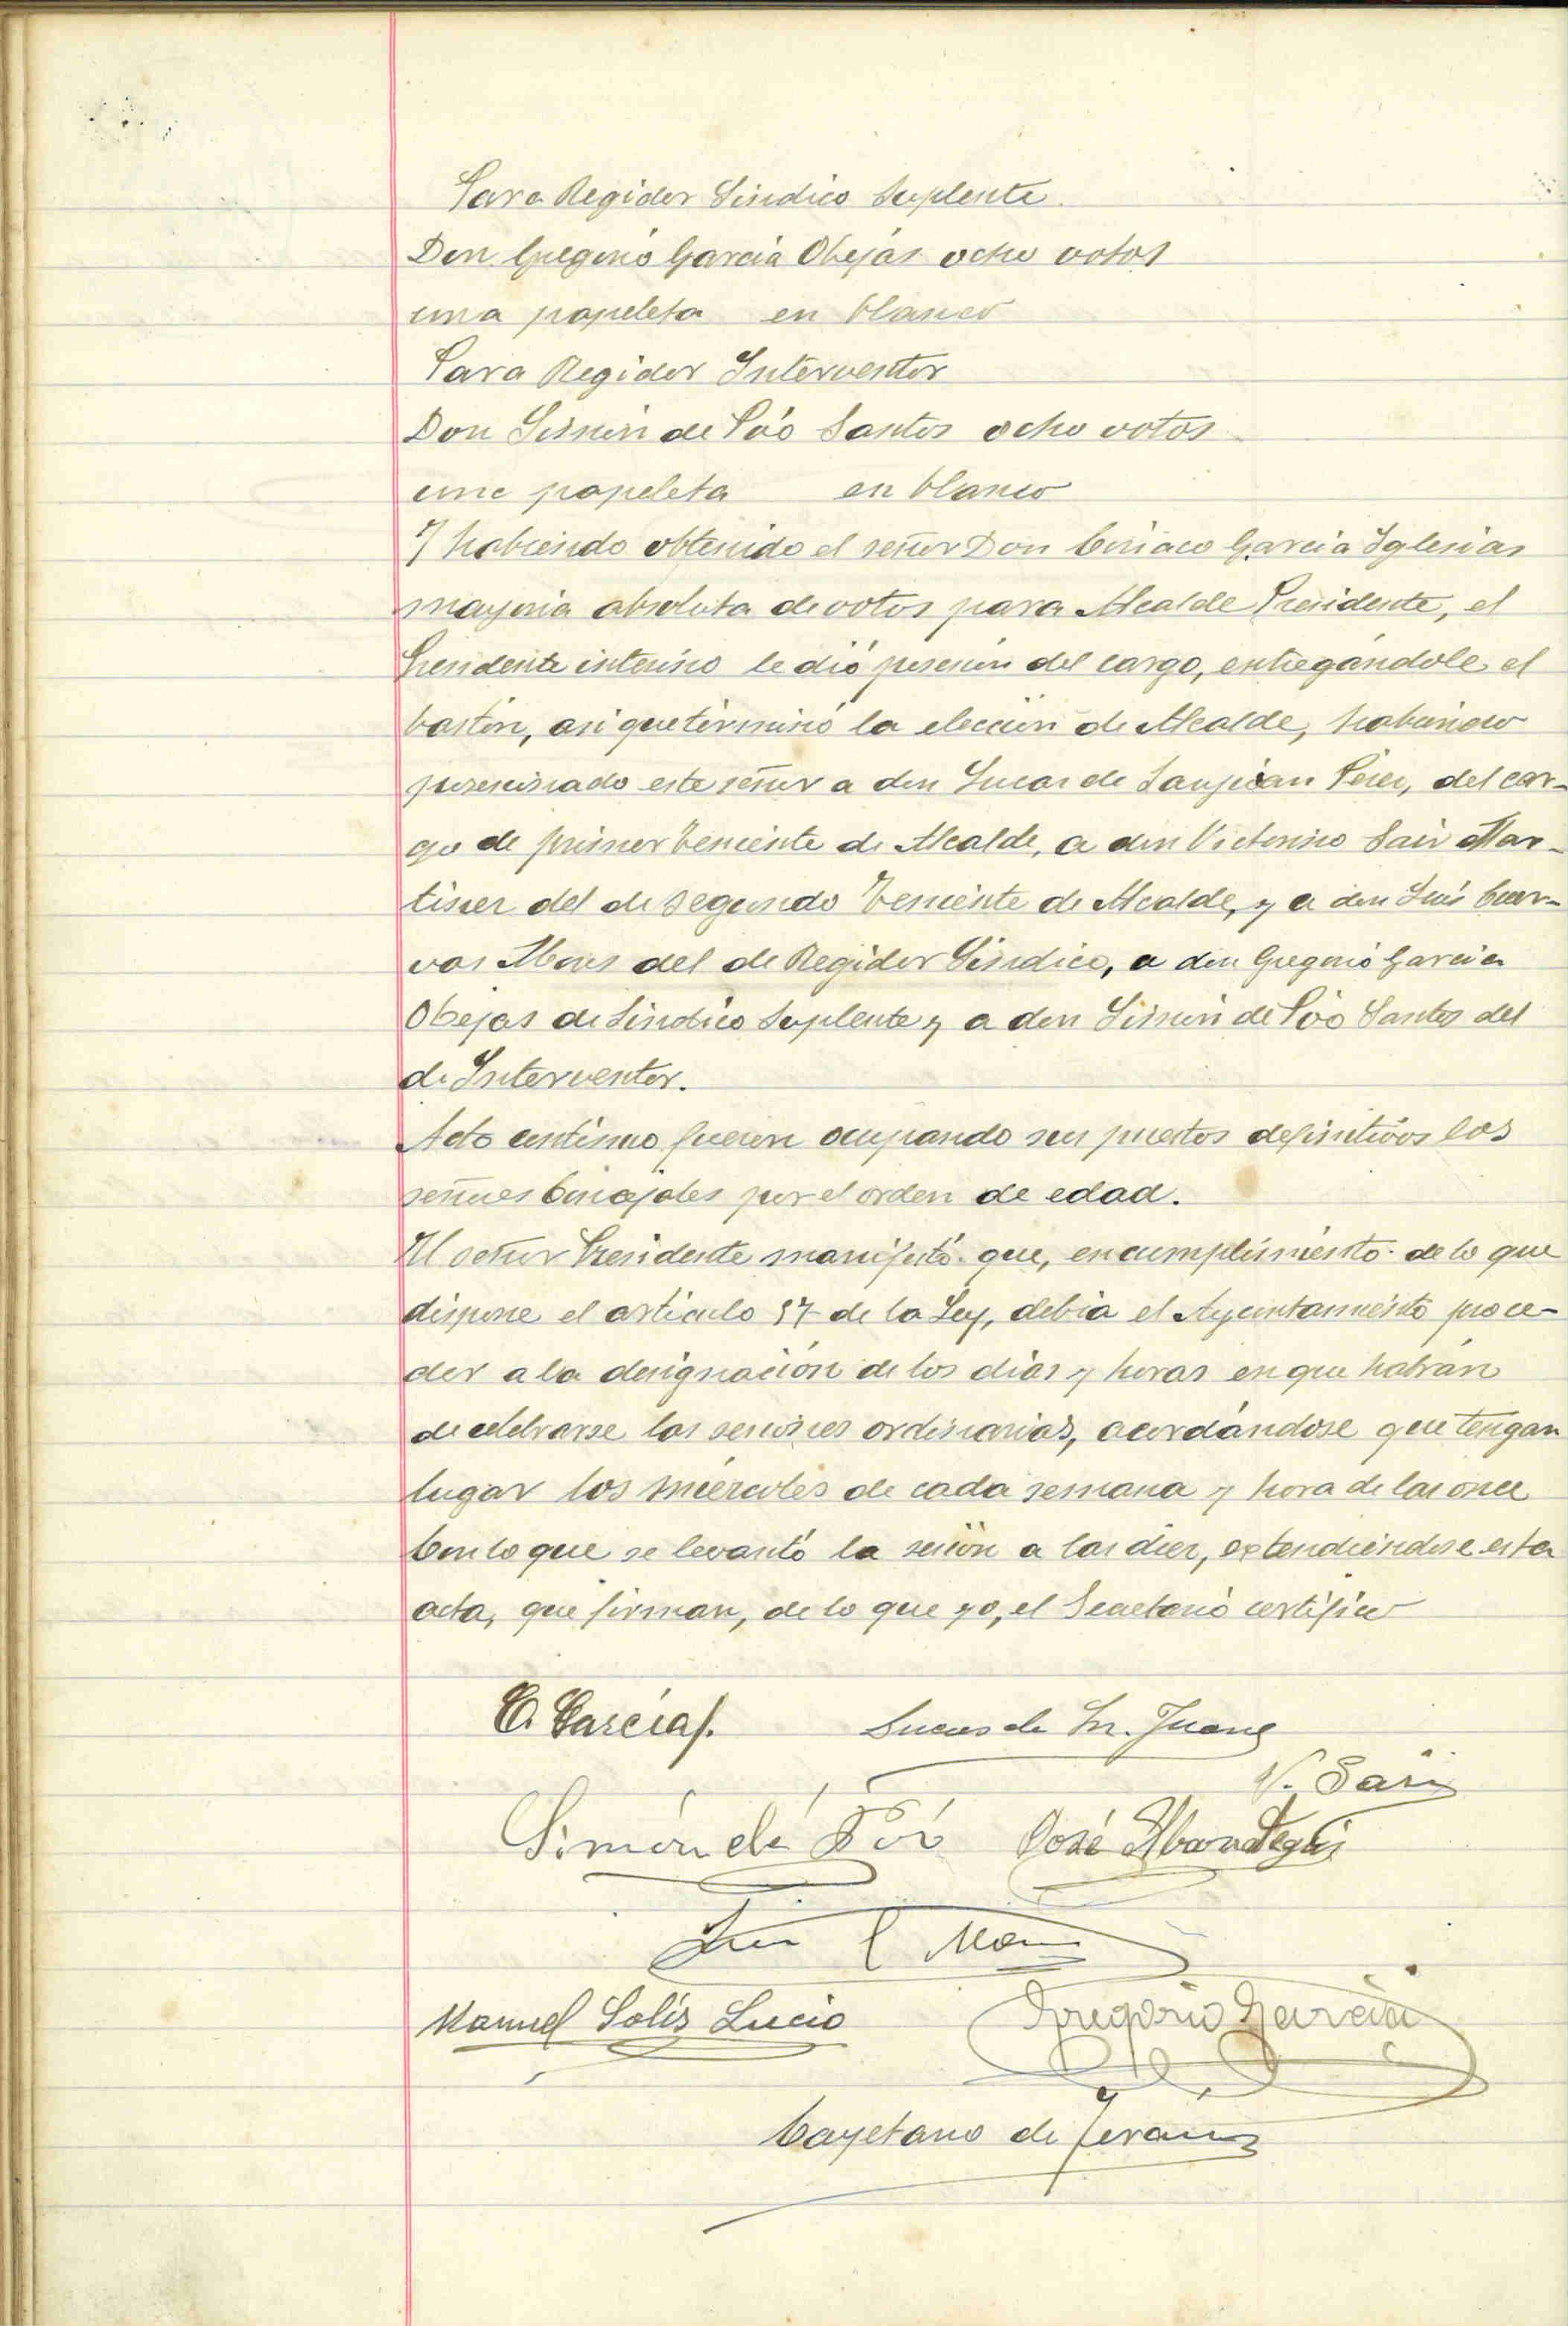 Para Regidor Sindico Suplente.
Don Gregorio Garcia Obejas ocho votos
una papeleta en blanco
Para Regidor Interventor
Don Simon de Póo Santos ocho votos
una papeleta en blanco
Y habiendo obtenido el señor Don Ciriaco Garcia Iglesias
mayoria absoluta de votos para Alcalde Presidente, el
Presidente interino le dió posesion del cargo, entregándole el
baston, asi que terminó la eleccion de Alcalde, habiendo
posesionado este señor a don Lucas de Sanjuan Perez, del car-
go de primer teniente de Alcalde, a don Victorino Sair Mar-
tinez del de segundo Teniente de Alcalde, y a don Luis Cuer-
vas Mons del de Regidor Sindico, a don Gregorio Garcia
Obejas de Sindico Suplente y a don Simon de Póo Santos del
de Interventor.
Acto continuo fueron ocupando sus puestos definitivos los
señores Concejales por el orden de edad.
El señor Presidente manifestó que, en cumplimiento de lo que
dispone el articulo 57 de la Ley, debia el Ayuntamiento proce-
der a la designación de los dias y horas en que habrán
de celebrarse las sesiones ordinarias, acordándose que tengan
lugar los miercoles de cada semana y hora de las once
Con lo que se levantó la sesion a las diez, extendiendose esta
acta, que firman, de lo que yo, el Secretario certifico
C. Garcia
Lucas de Sn. Juan
V. Sair
Simón de Póo José
Luis C Mons
Manuel Solís Lucio Gregorio Garcia
Cayetano de